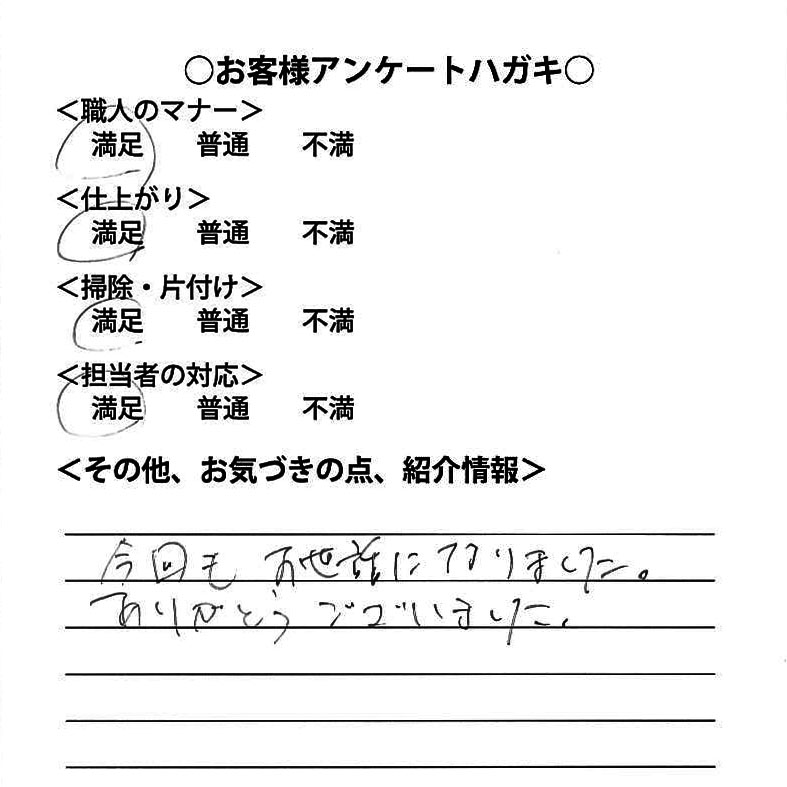 ○お客様アンケートハガキ○
＜職人のマナー＞
満足 普通 不満
＜仕上がり＞
満足 普通 不満
＜掃除・片付け＞
満足 普通 不満
＜担当者の対応＞
満足 普通 不満
＜その他、お気づきの点、紹介情報＞
今回も お世話になりました。
ありがとうございました。